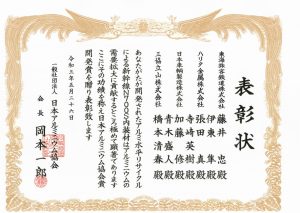 表彰状
東海旅客鉄道株式会社
藤井 忠殿
伊東 集殿
ハリタ金属株式会社
張田 真殿
寺崎英樹殿
日本車輌製造株式会社
加藤 修殿
青木盛人殿
三協立山株式会社
橋本清春殿
あなたがたが開発されたアルミ水平リサイクル
による新幹線内装材はアルミニウムの
需要拡大に貢献するところ極めて顕著であります
ここにその功績を称え日本アルミニウム協会賞
開発賞を贈り表彰致します
令和三年五月二十六日
一般社団法人 日本アルミニウム協会
会長 岡本一郎